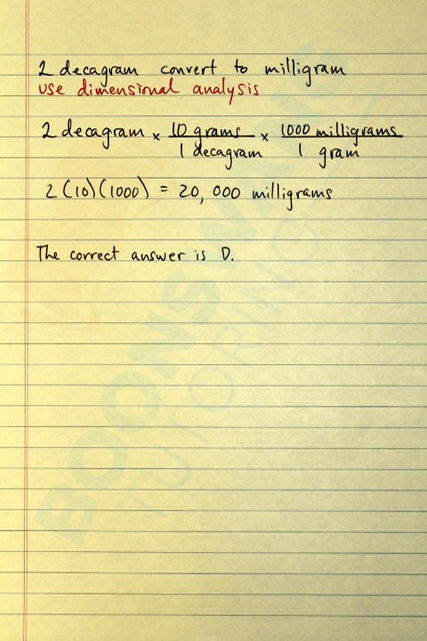 2 decagram convert to milligram
use dimensional analysis
2 decagram x 10 grams / 1 decagram x 1000 milligrams / 1 gram
2(10)(1000) = 20,000 milligrams
The correct answer is D.
BOONSWANG
TUTORING